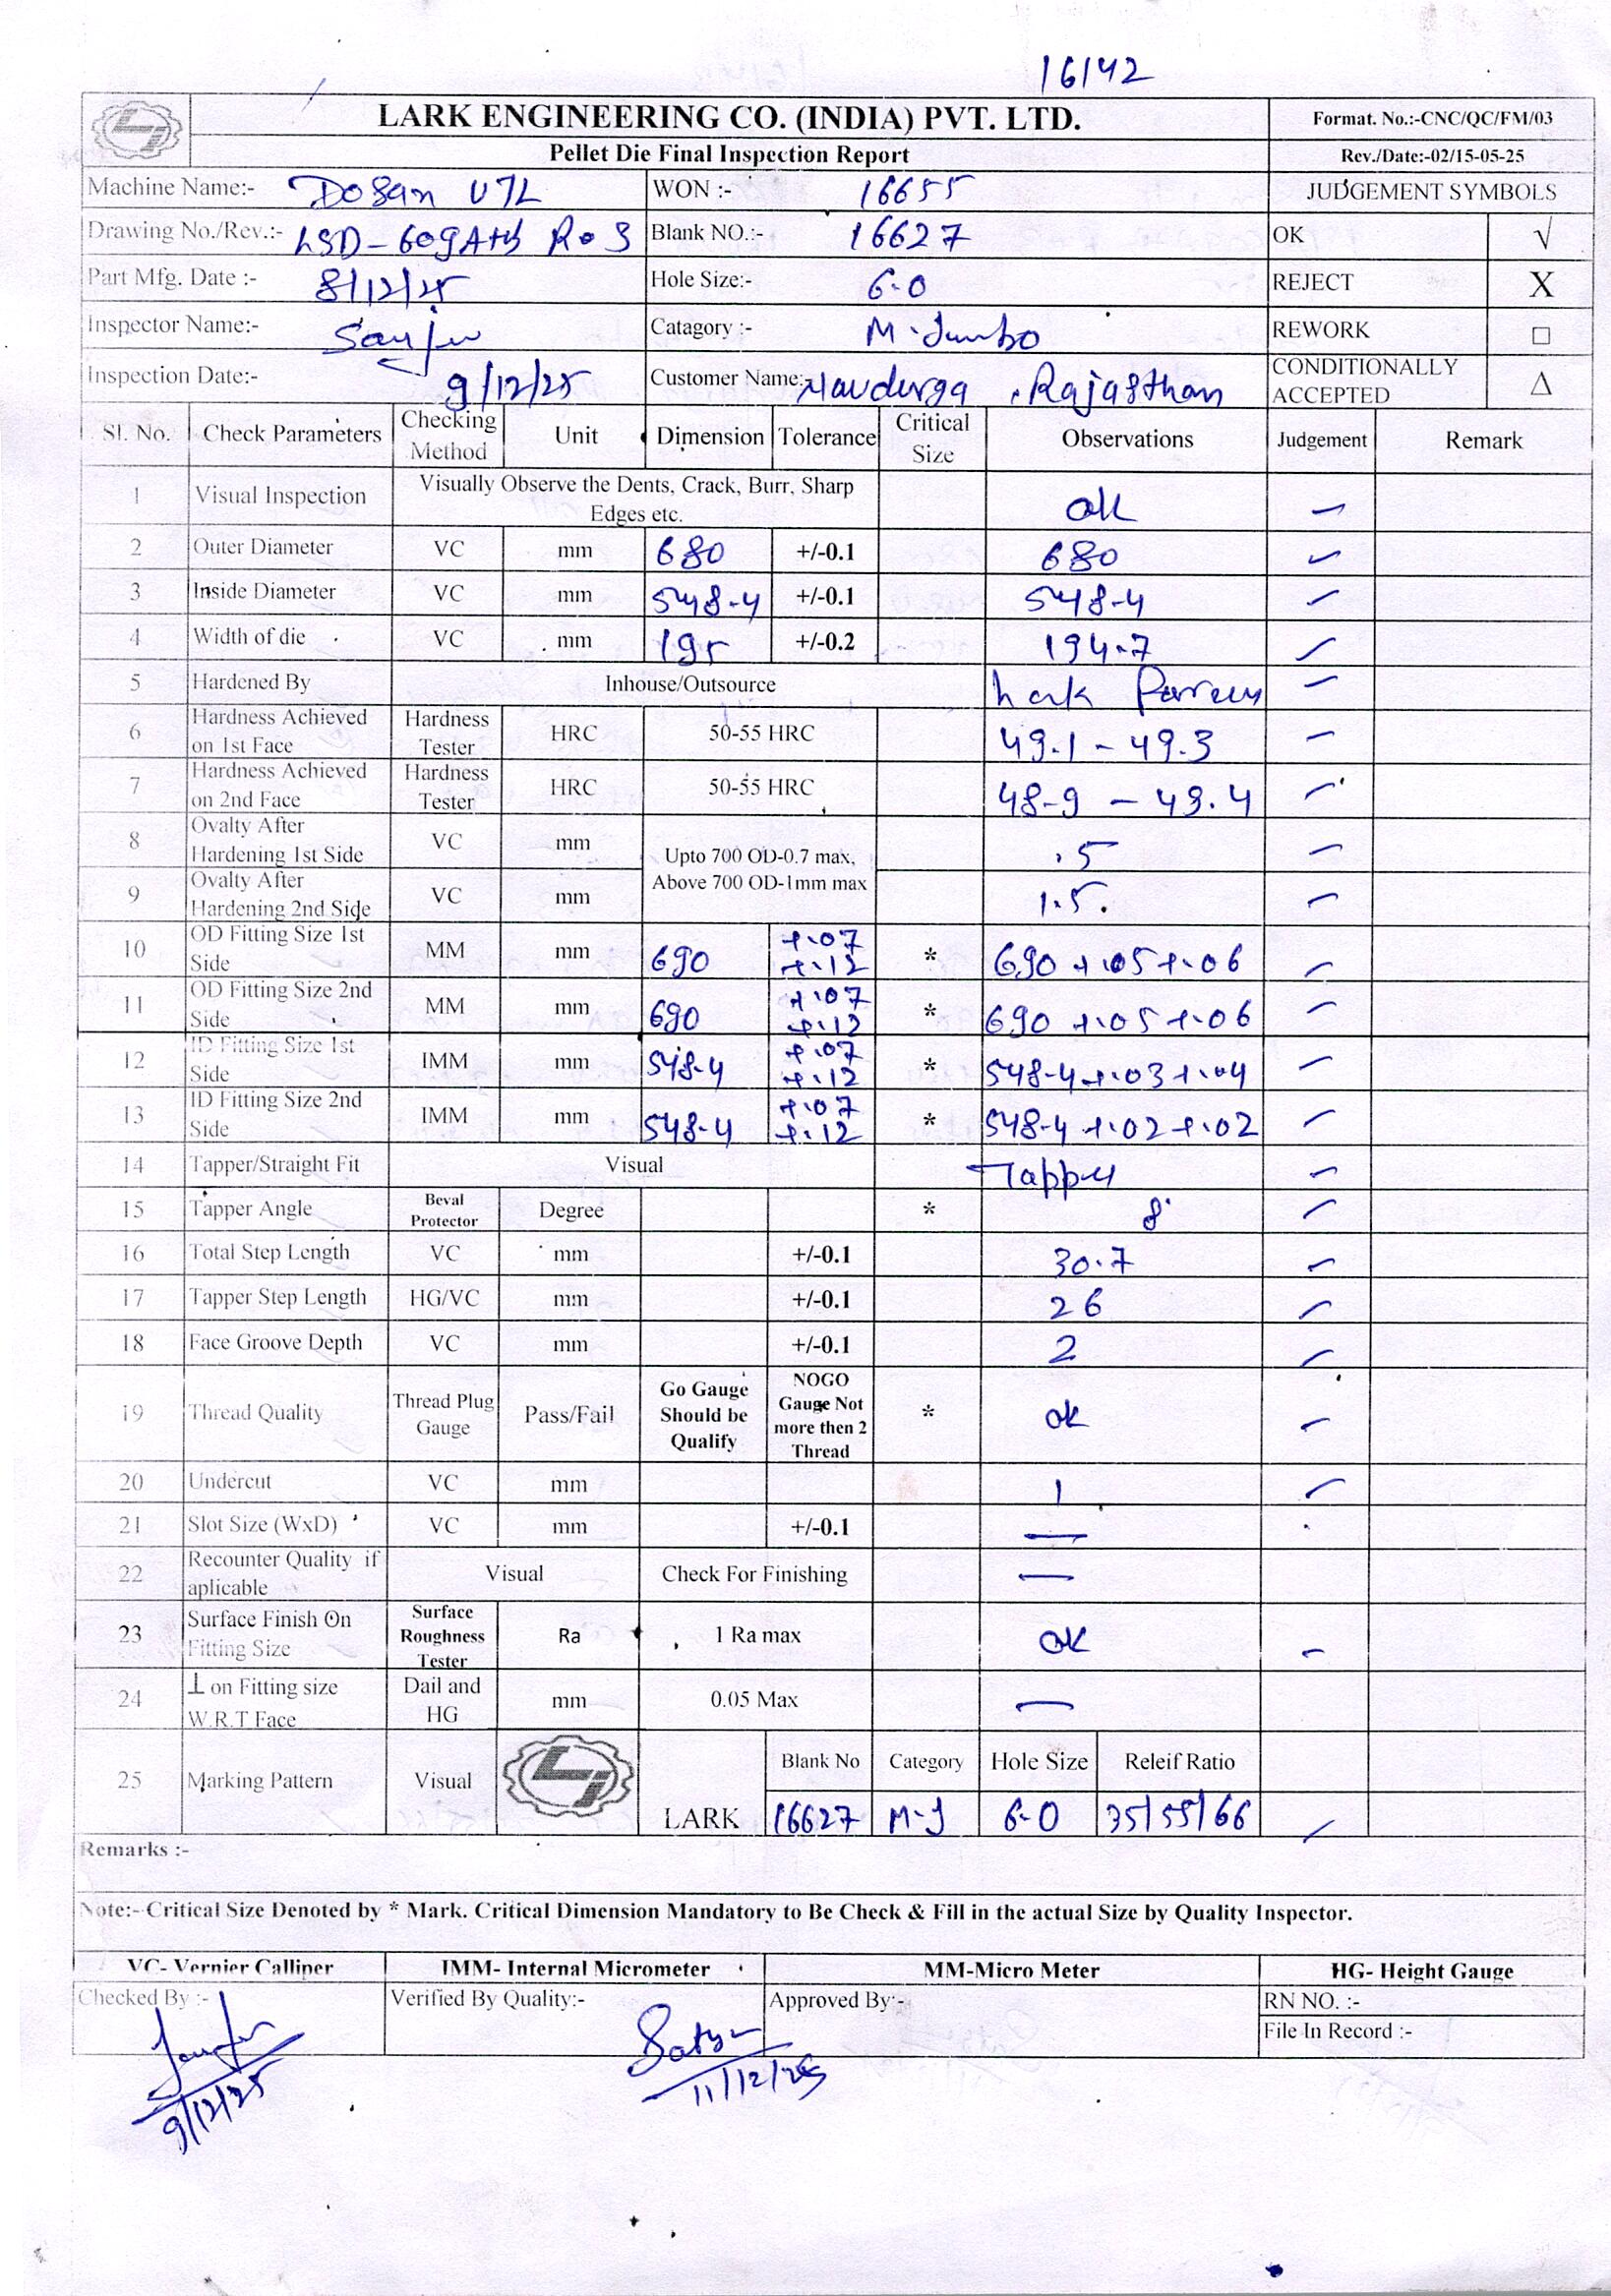 16142
LARK ENGINEERING CO. (INDIA) PVT. LTD.
Format. No.:-CNC/QC/FM/03
Pellet Die Final Inspection Report
Rev./Date:-02/15-05-25
Machine Name:- Dosan V7L WON :- 16655 JUDGEMENT SYMBOLS
Drawing No./Rev.:- LSD-609 R03 Blank NO.:- 16627 OK √
Part Mfg. Date :- 8/12/25 Hole Size:- 6.0 REJECT X
Inspector Name:- Sanju Catagory :- M-Jumbo REWORK □
Inspection Date:- 9/12/25 Customer Name: Navdurga, Rajasthan CONDITIONALLY ACCEPTED Δ
Sl. No. Check Parameters Checking Method Unit Dimension Tolerance Critical Size Observations Judgement Remark
1 Visual Inspection Visually Observe the Dents, Crack, Burr, Sharp Edges etc. OK
2 Outer Diameter VC mm 680 +/-0.1 680
3 Inside Diameter VC mm 548.4 +/-0.1 548.4
4 Width of die VC mm 195 +/-0.2 194.7
5 Hardened By Inhouse/Outsource Lark
6 Hardness Achieved on 1st Face Hardness Tester HRC 50-55 HRC 49.1 - 49.3
7 Hardness Achieved on 2nd Face Hardness Tester HRC 50-55 HRC 48.9 - 49.4
8 Ovalty After Hardening 1st Side VC mm Upto 700 OD-0.7 max, Above 700 OD-1mm max .5
9 Ovalty After Hardening 2nd Side VC mm 1.5
10 OD Fitting Size 1st Side MM mm 690 +.07 +.12 * 690 +.05 +.06
11 OD Fitting Size 2nd Side MM mm 690 +.07 +.12 * 690 +.05 +.06
12 ID Fitting Size 1st Side IMM mm 548.4 +.07 +.12 * 548.4 +.03 +.04
13 ID Fitting Size 2nd Side IMM mm 548.4 +.07 +.12 * 548.4 +.02 +.02
14 Tapper/Straight Fit Visual Tapper
15 Tapper Angle Beval Protector Degree * 8°
16 Total Step Length VC mm +/-0.1 30.7
17 Tapper Step Length HG/VC mm +/-0.1 26
18 Face Groove Depth VC mm +/-0.1 2
19 Thread Quality Thread Plug Gauge Pass/Fail Go Gauge Should be Qualify NOGO Gauge Not more then 2 Thread * OK
20 Undercut VC mm 1
21 Slot Size (WxD) VC mm +/-0.1 —
22 Recounter Quality if aplicable Visual Check For Finishing —
23 Surface Finish On Fitting Size Surface Roughness Tester Ra 1 Ra max OK
24 ⊥ on Fitting size W.R.T Face Dail and HG mm 0.05 Max —
25 Marking Pattern Visual LARK Blank No Category Hole Size Releif Ratio
16627 M-J 6.0 35/55/66
Remarks :-
Note:- Critical Size Denoted by * Mark. Critical Dimension Mandatory to Be Check & Fill in the actual Size by Quality Inspector.
VC- Vernier Calliper IMM- Internal Micrometer MM-Micro Meter HG- Height Gauge
Checked By :- Verified By Quality:- Approved By:- RN NO. :-
File In Record :-
Sanju Satyen
9/12/25 11/12/25